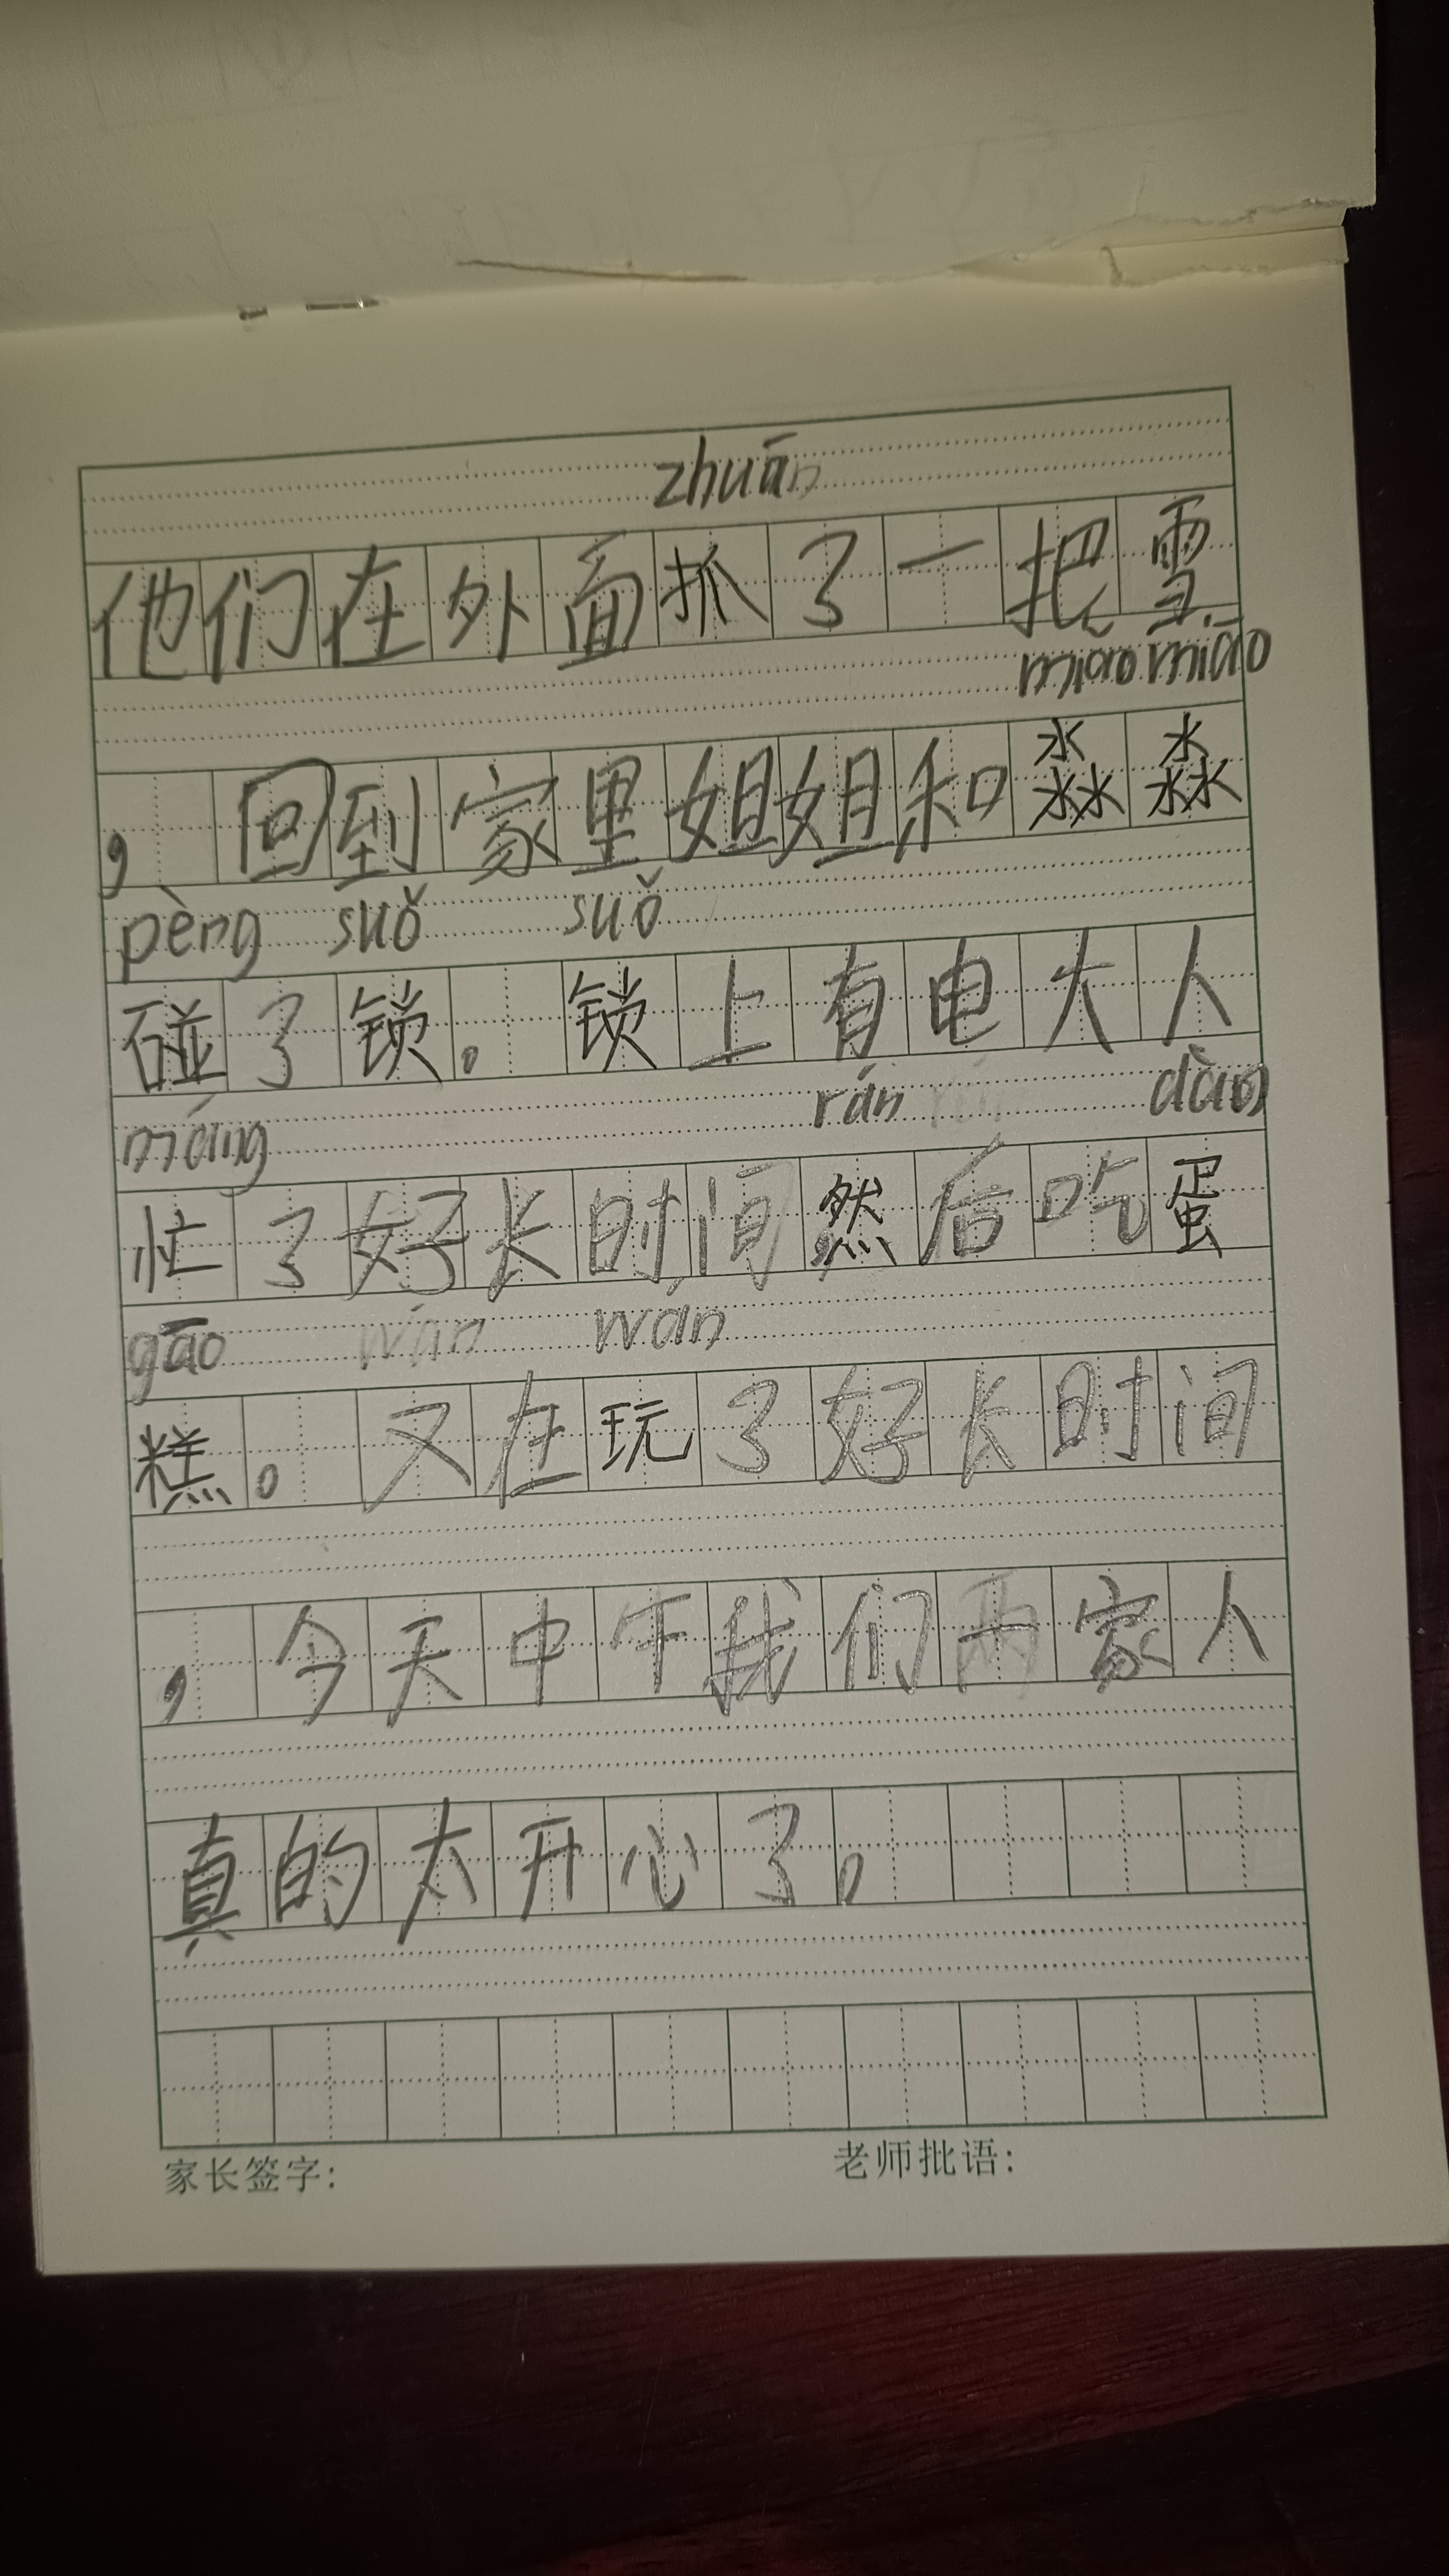 zhuān
他们在外面抓了一把雪
miǎo miǎo
，回到家里姐姐和淼淼
pèng suǒ suǒ
碰了锁。锁上有电大人
máng rán dàn
忙了好长时间然后吃蛋
gāo wán wán
糕。又在玩了好长时间
，今天中午我们两家人
真的太开心了。
家长签字： 老师批语：